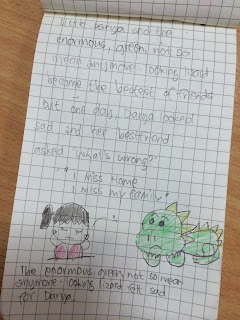 little Darya and the
enormous, green, not so
mean anymore looking lizard
became the bestest of friends
but one day, Darya looked
sad and her bestfriend
asked "what's wrong?"
"I miss Home
I miss my family"
The enormous, green, not so mean
anymore-looking lizard felt sad
for Darya.